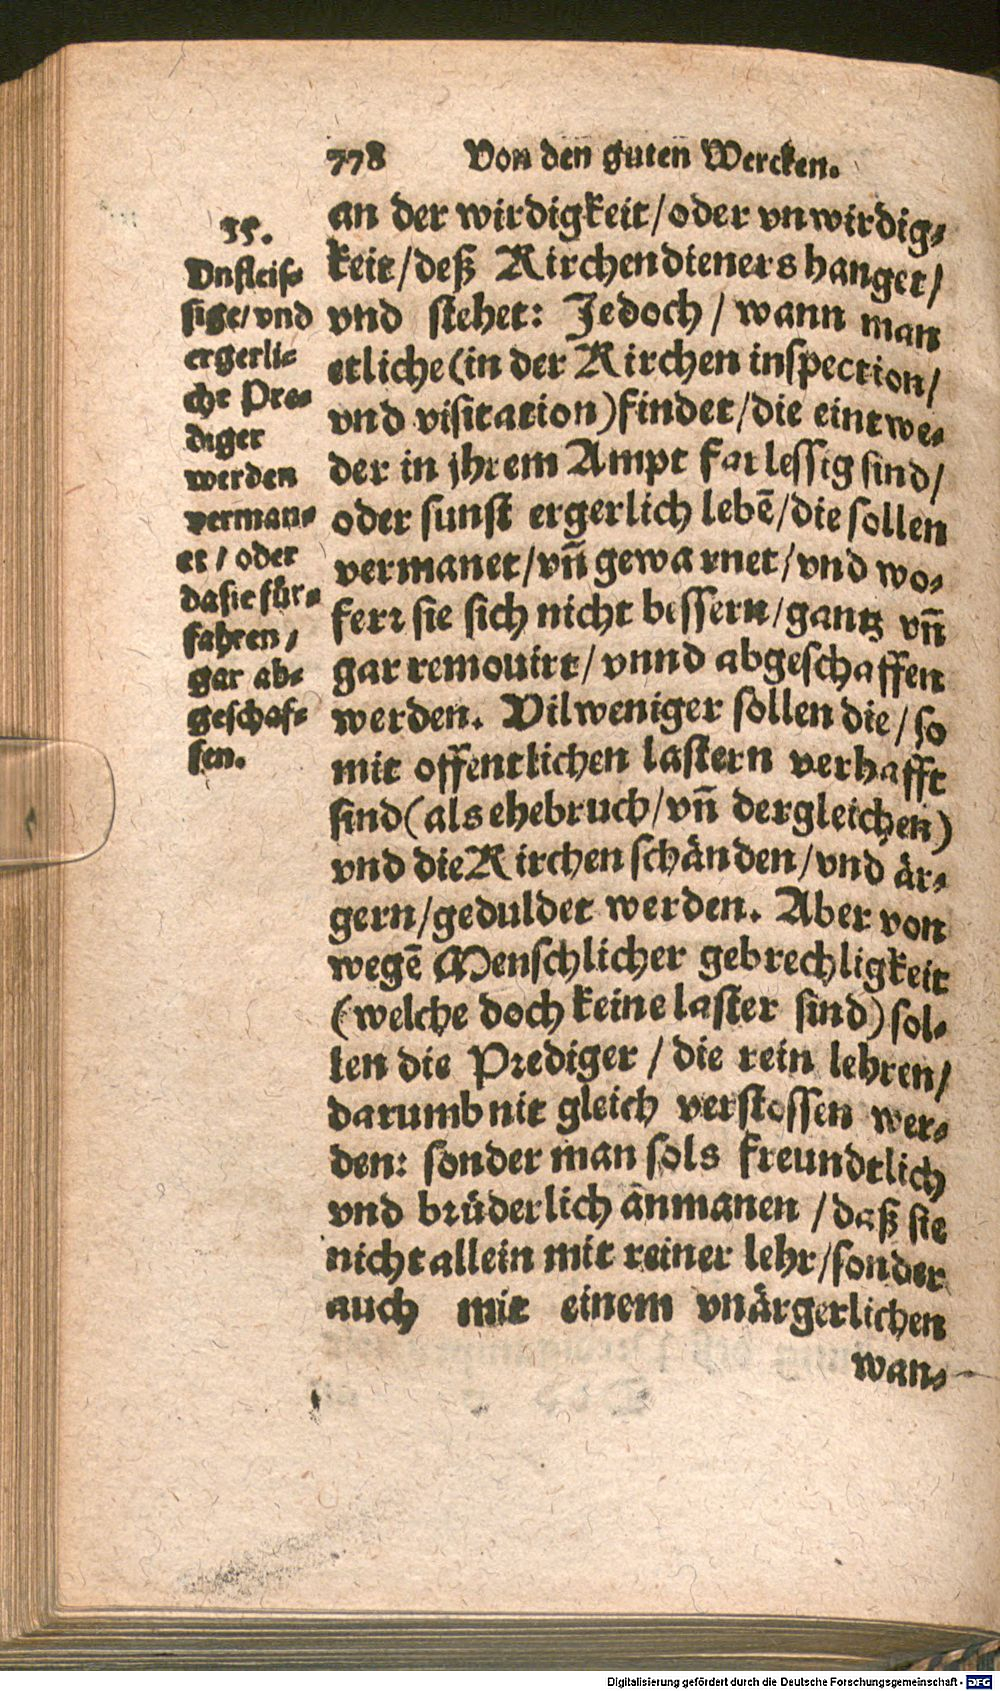 778 Von den guten Wercken.
35.
Vnfleis-
sige/ vnd
ergerli-
che Pre-
diger
werden
verman-
et / oder
da sie für-
fahren /
gar ab-
geschaf-
fen.
an der wirdigkeit/ oder vnwirdig-
keit/ deß Kirchendieners hanget/
vnd stehet: Jedoch / wann man
etliche (in der Kirchen inspection/
vnd visitation) findet/ die eintwe-
der in jhrem Ampt farlessig sind/
oder sunst ergerlich lebē/ die sollen
vermanet/ vñ gewarnet/ vnd wo-
fern sie sich nicht bessern/ gantz vñ
gar remouirt/ vnnd abgeschaffen
werden. Vil weniger sollen die/ so
mit offentlichen lastern verhafft
sind (als ehebruch/ vñ dergleichen)
vnd die Kirchen schänden/ vnd är-
gern/ geduldet werden. Aber von
wegē Menschlicher gebrechligkeit
(welche doch keine laster sind) sol-
len die Prediger / die rein lehren/
darumb nit gleich verstossen wer-
den: sonder man sols freundtlich
vnd brüderlich anmanen / daß sie
nicht allein mit reiner lehr/ sonder
auch mit einem vnärgerlichen
wan-
Digitalisierung gefördert durch die Deutsche Forschungsgemeinschaft - DFG